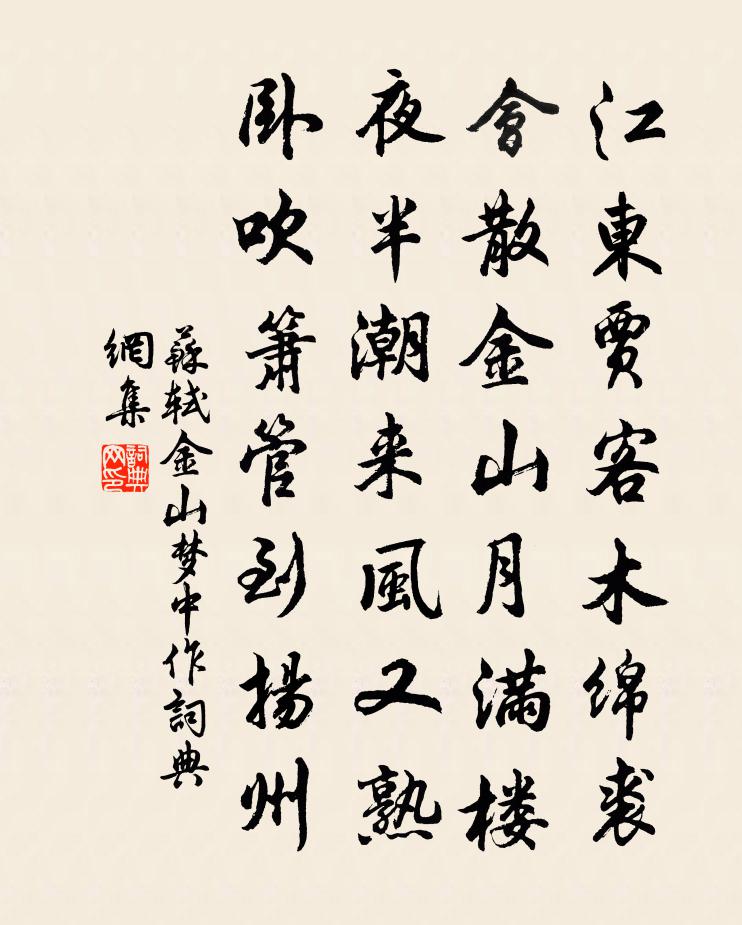 江東賈客木綿裘
會散金山月滿楼
夜半潮来風又熟
卧吹簫管到揚州
蘇軾金山梦中作詞典
網集
詞典网印